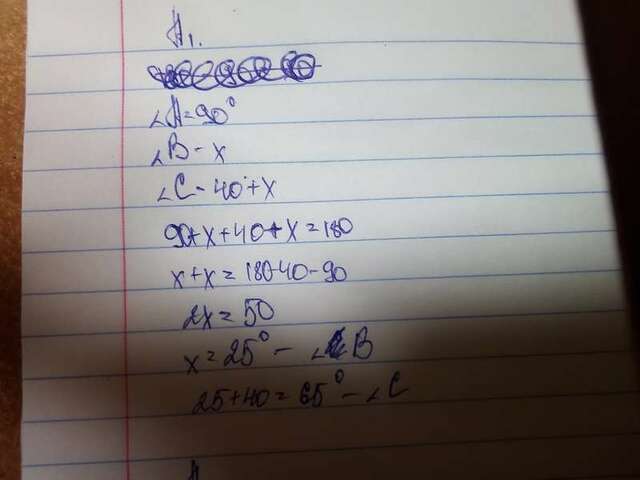 №1.
∠A=90°
∠B - x
∠C - 40+x
90+x+40+x=180
x+x=180-40-90
2x=50
x=25° - ∠B
25+40=65° - ∠C